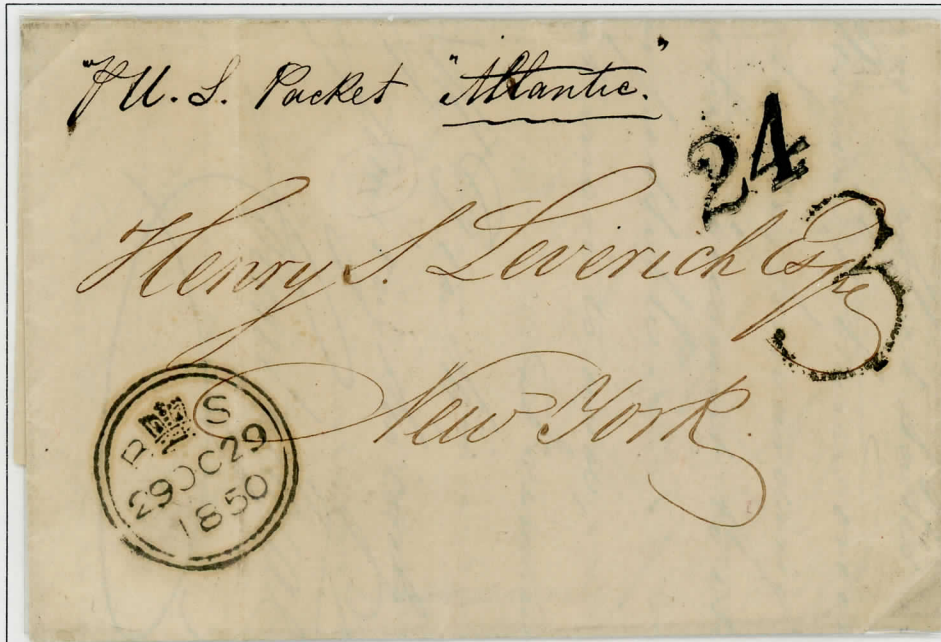 "⅌ U. S. Packet "Atlantic."
24
3
Henry S. Leverich Esqre
New York.
P S
29 OC 29
1850